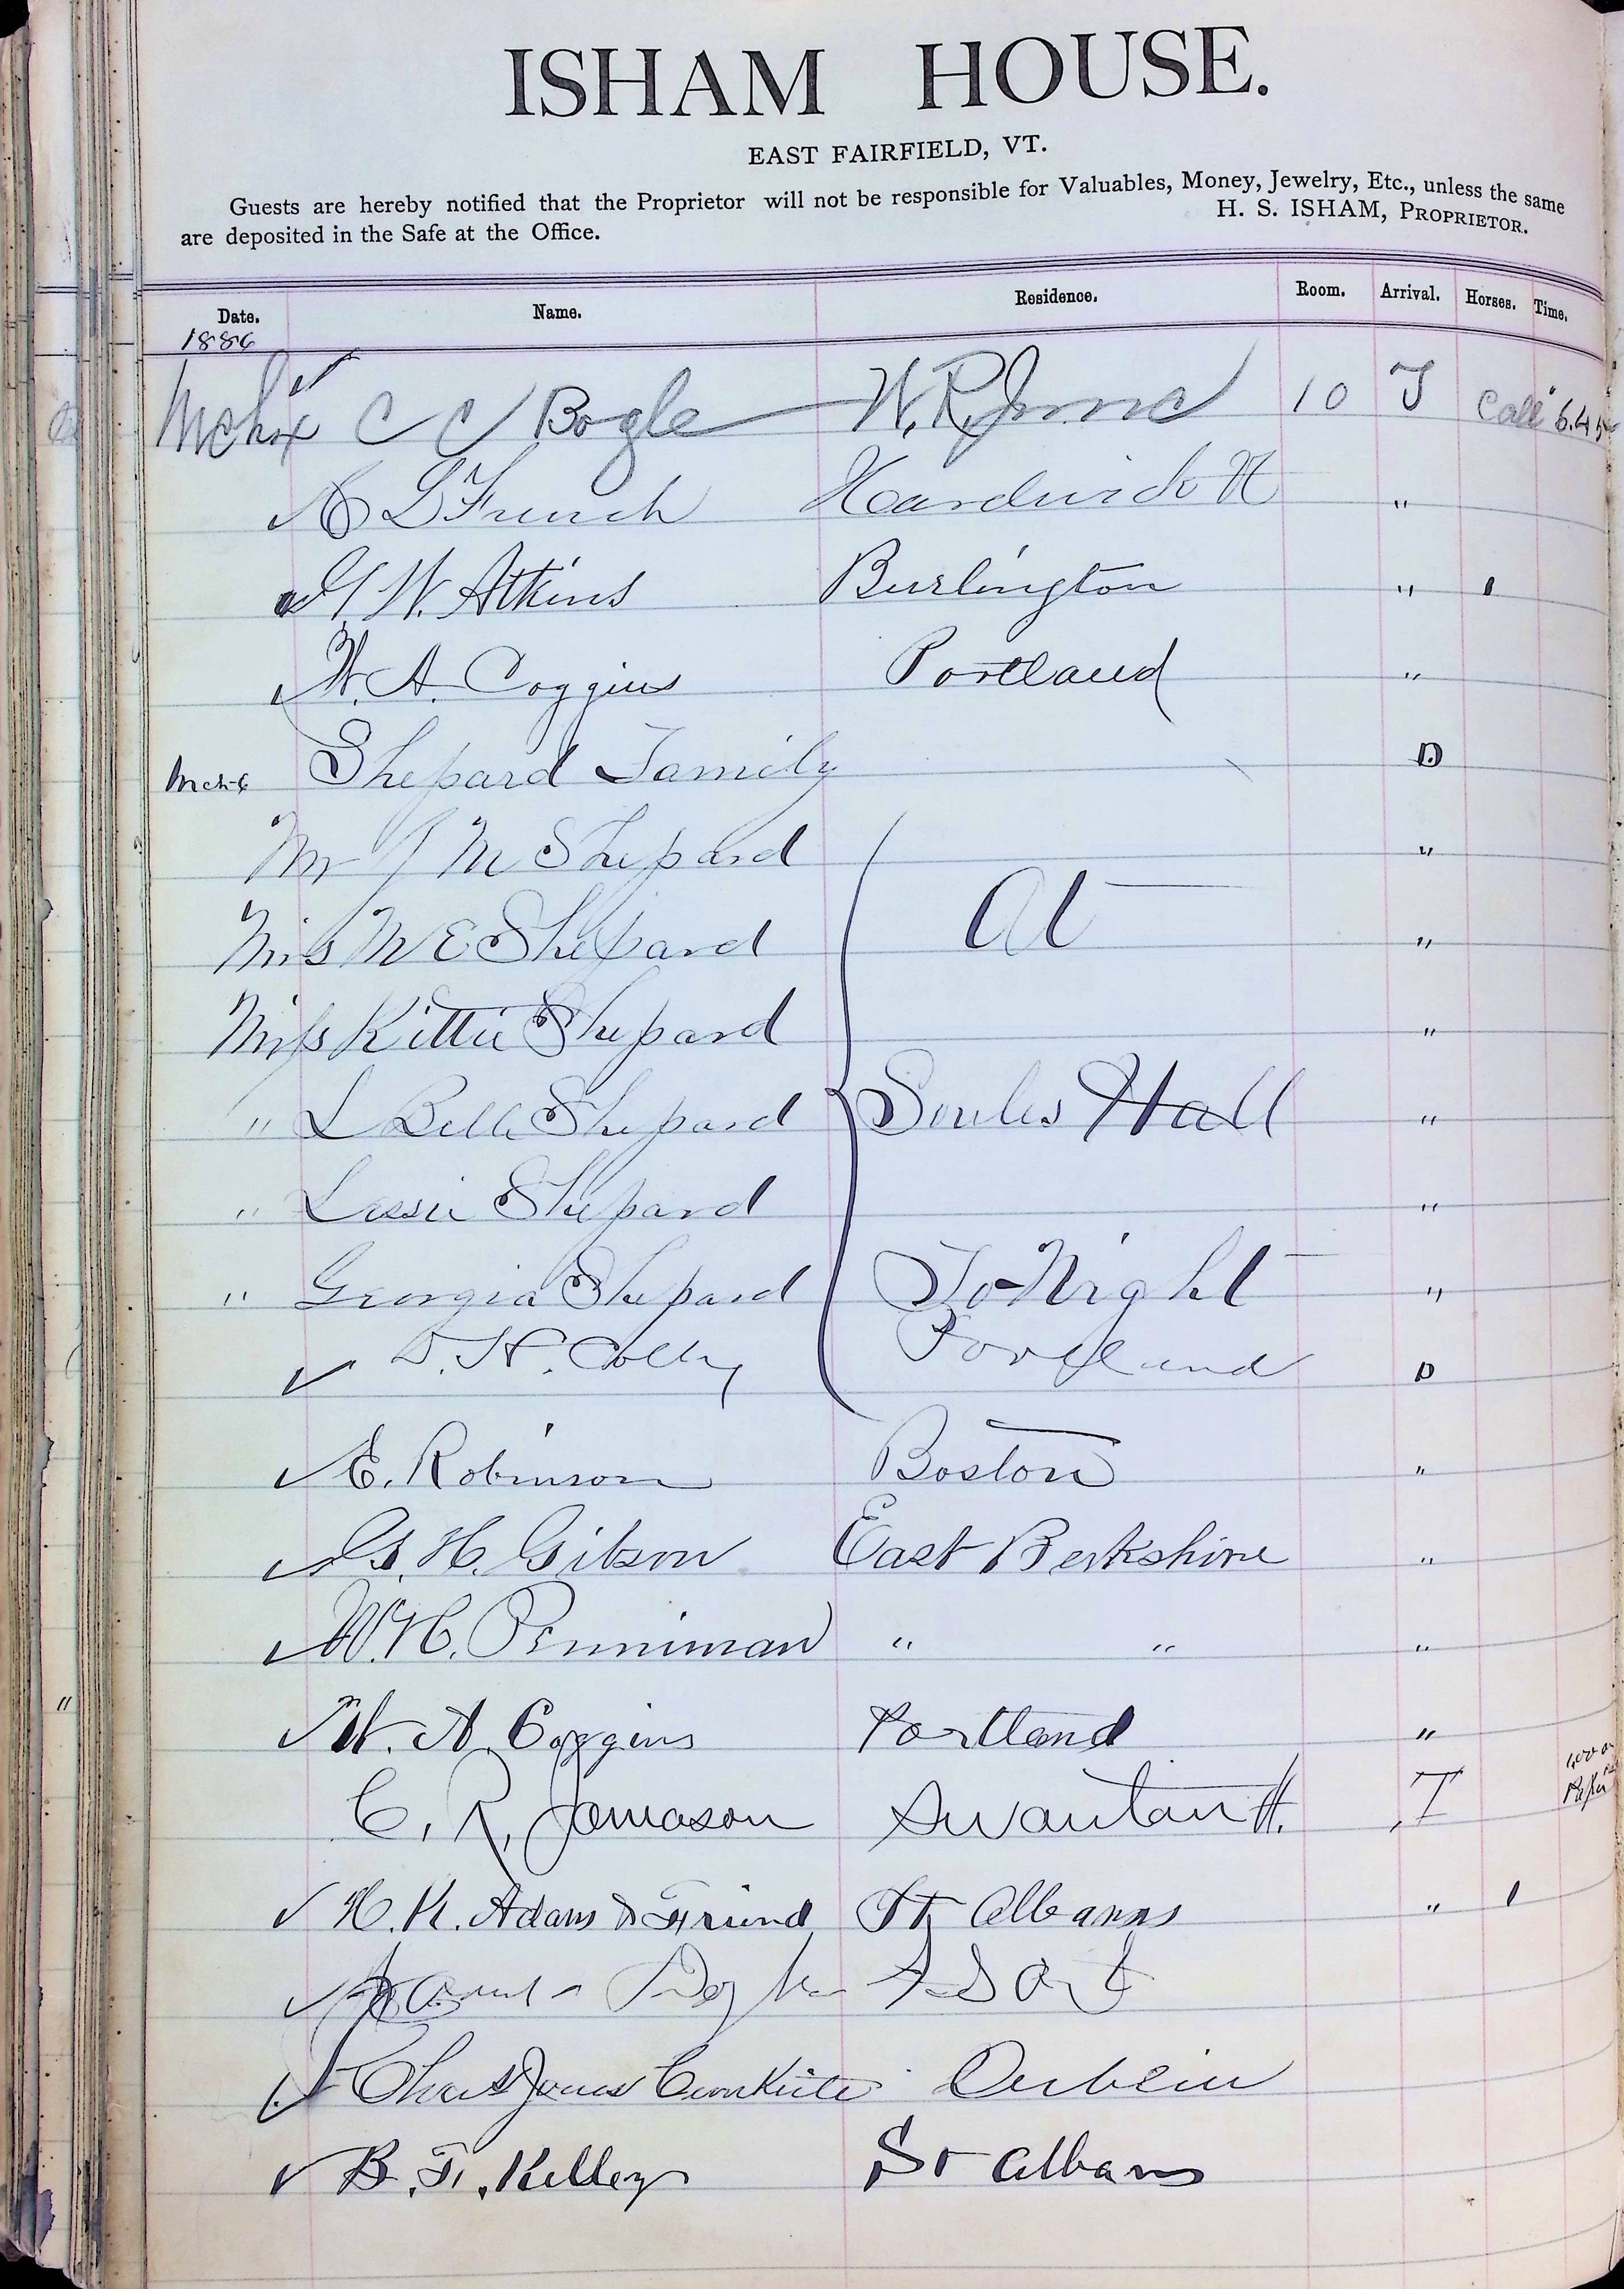 ISHAM HOUSE.
EAST FAIRFIELD, VT.
Guests are hereby notified that the Proprietor will not be responsible for Valuables, Money, Jewelry, Etc., unless the same
are deposited in the Safe at the Office.
H. S. ISHAM, PROPRIETOR.
Date. Name. Residence. Room. Arrival. Horses. Time.
1886
C C Bogle W. R. 10 T Call 6.45
L French Hardwick Vt "
W. Atkins Burlington " 1
W. A. Coggins Portland "
Mch 6 Shepard Family D
Mr J M Shepard "
Mrs M E Shepard At "
Miss Kittie Shepard "
" L Belle Shepard Soules Hall "
" Lessie Shepard "
" Georgia Shepard To-Night "
D. H. Colby Portland D
E. Robinson Boston "
G. H. Gibson East Berkshire "
W. H. Penniman " " "
W. A. Coggins Portland "
C. R. Jamason Swanton Vt. T
H. K. Adams & Friend St Albans " 1
Chas Jones Cronkite
B. F. Kelley St Albans